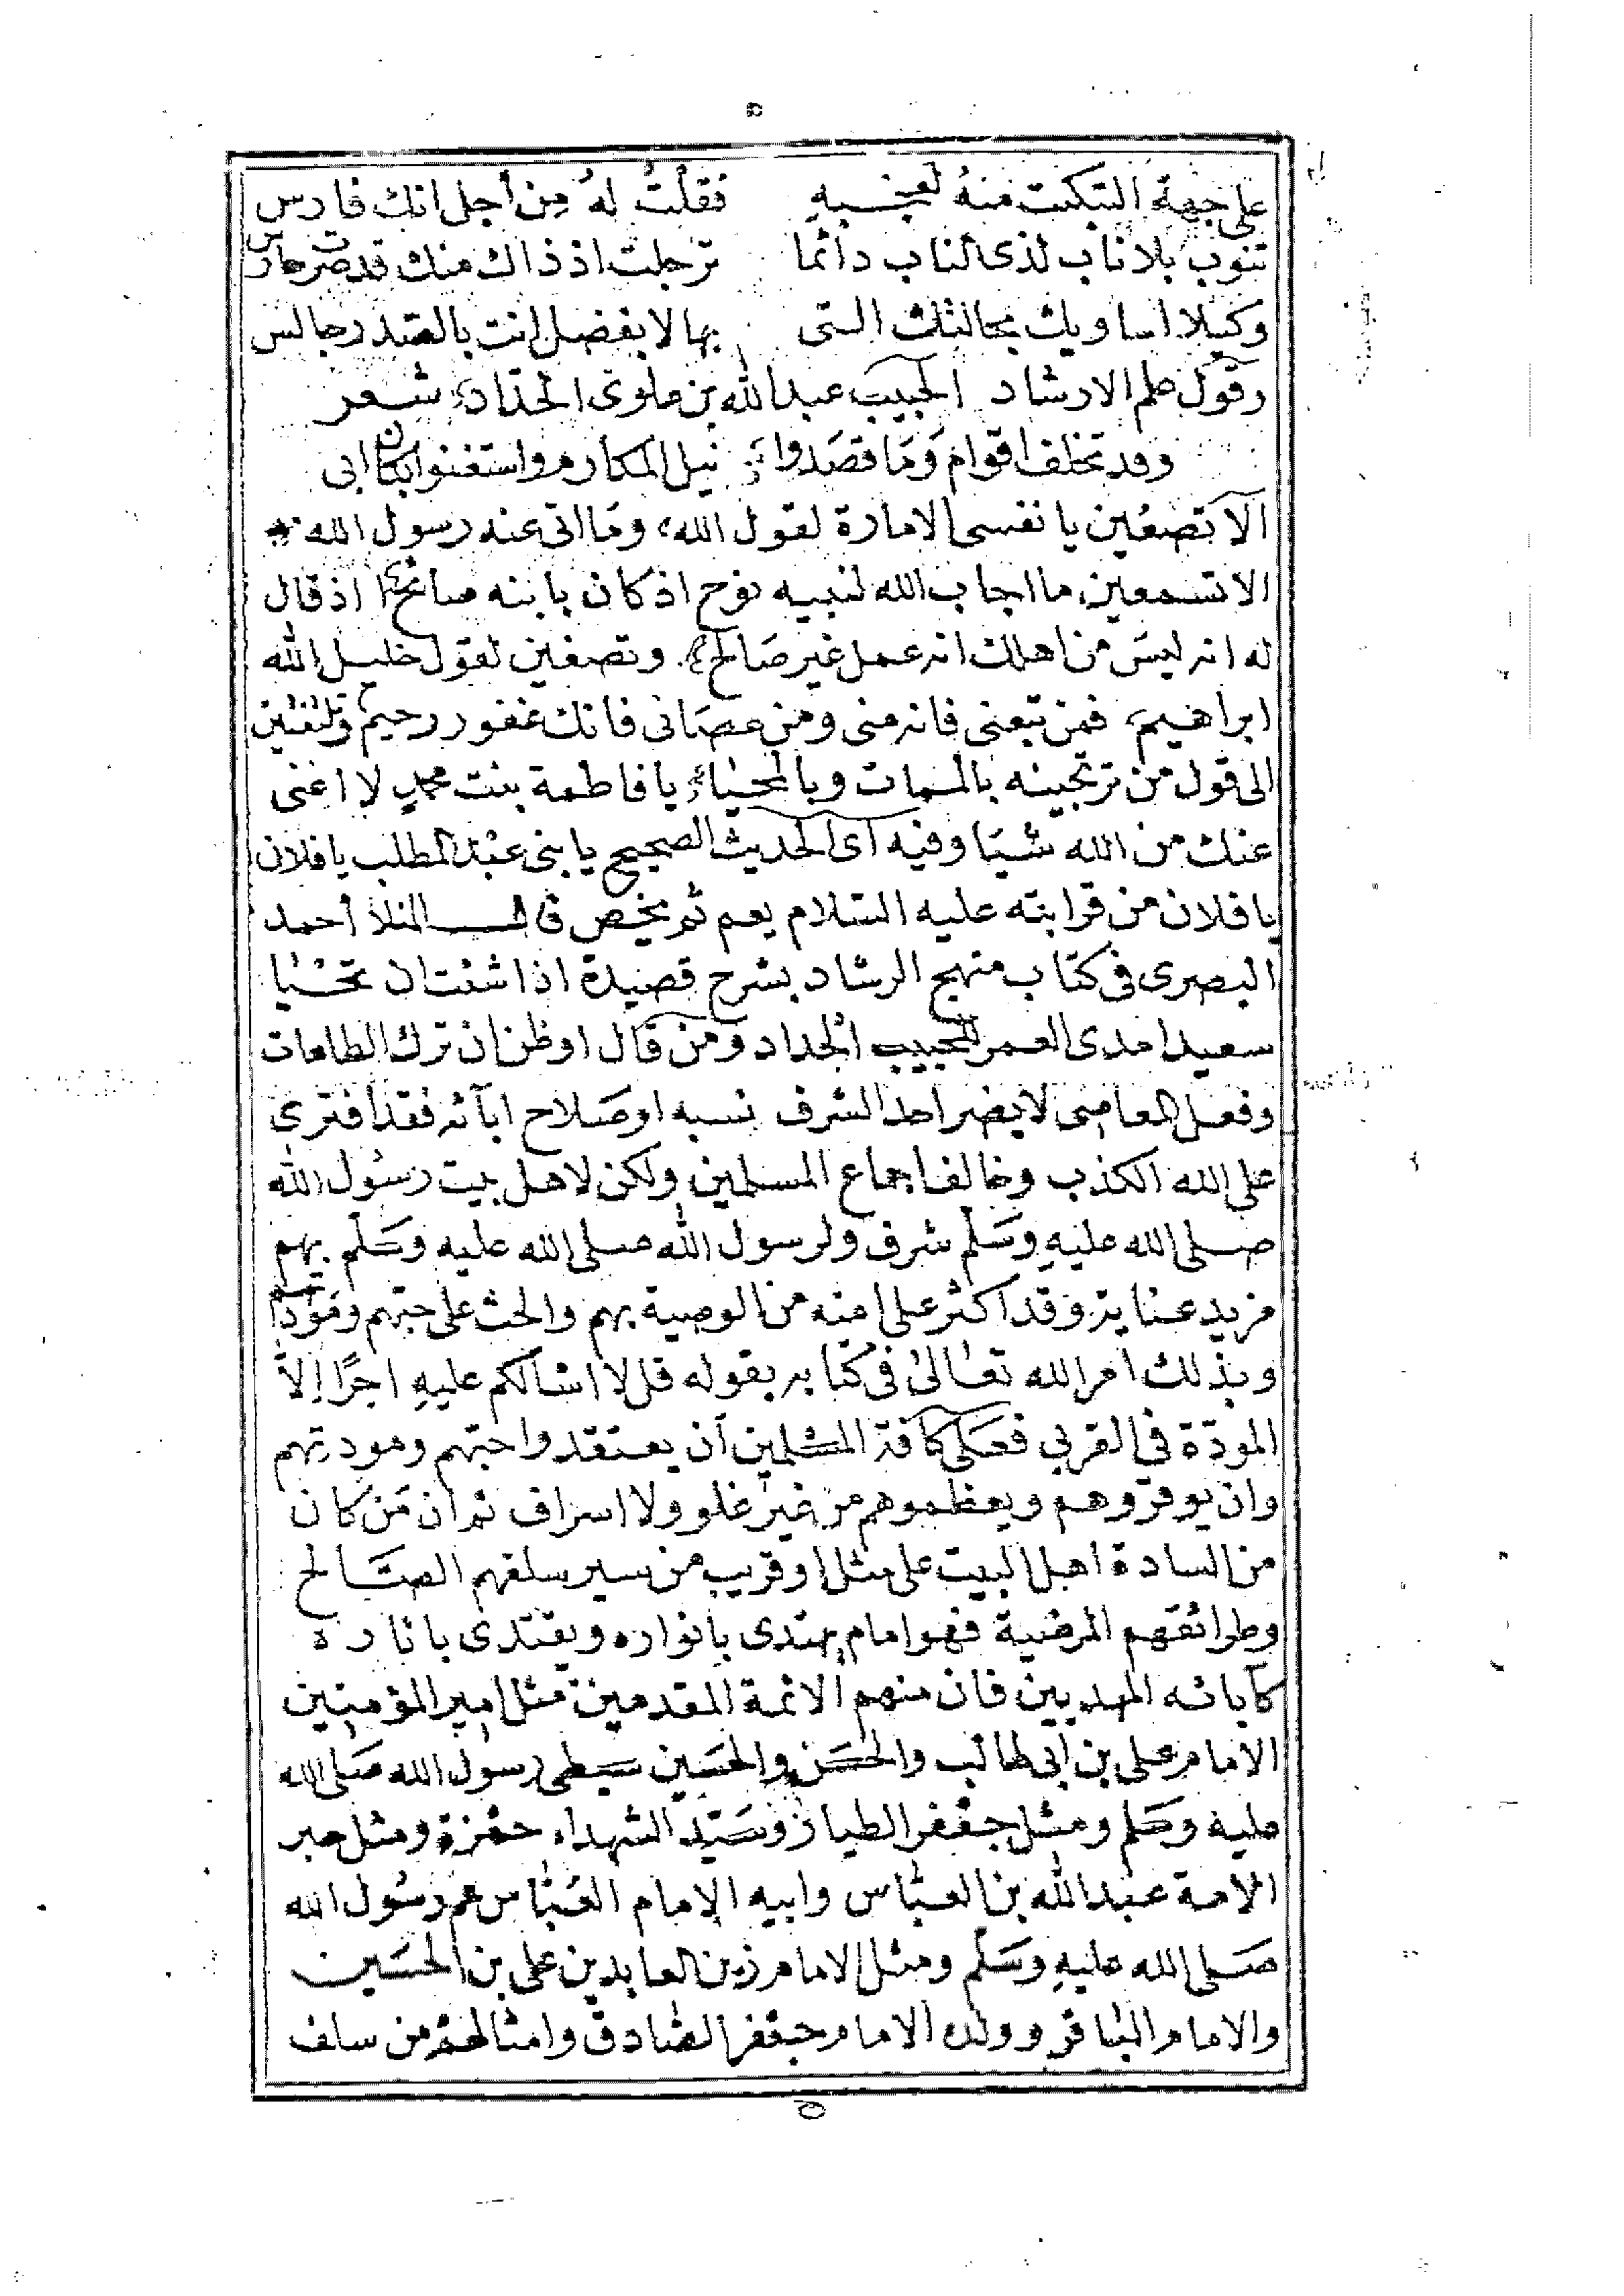 على جهة التبكت منهُ لعجبهِ فقلتُ لهُ مِن أجل انك فارس
تنوب بلا ناب لذى الناب دائما ترجلت اذ ذاك منك قد صرت حارس
وكيلا اساويك بحالتك التى بها لا بفضل انت بالصدر جالس
وقول علم الارشاد الحبيب عبدالله بن علوى الحداد شعر
وقد تخلف اقوام وَمَا قصَدوا نيل المكارم واستغنوا بكان ابى
ألا تصغين يا نفسى الامارة لقول الله، ومَا اتى عنه رسول الله
الا تسمعين ما اجاب الله لنبيه نوح اذ كان بابنه صائحا اذ قال
له انه ليسَ من اهلك انه عمل غير صَالح. وتصغين لقول خليل الله
ابراهيم، فمن تبعنى فانه منى ومن عصَانى فانك غفور رحيم وتلتفتين
الى قول من ترتجينه بالممات وبالمحيَاء يا فاطمة بنت محمدٍ لا اغنى
عنك من الله شيَا وفيه أى الحديث الصحيح يا بنى عبْد المطلب يا فلان
يا فلان من قرابته عليه السّلام يعم ثم يخص قال المنلا أحمد
البصرى فى كتاب منهج الرشاد بشرح قصيدة اذا شئت ان تحْيَا
سعيدا مدى العمر للحبيب الحداد ومن قال او ظن ان ترك الطاعات
وفعل المعاصى لا يضر احدا لشرف نسبه او صَلاح ابآئه فقد افترى
على الله الكذب وخالف اجماع المسلمين ولكن لاهل بيت رسُول الله
صلى الله عليهِ وسَلّم شرف ولرسول الله صلى الله عليه وسَلّم بهم
مزيد عناية وقد اكثر على امته من الوصية بهم والحث على حبّهم ومَودّتهم
وبذلك امر الله تعَالىٰ فى كتابه بقوله قل لا اسْالكم عليهِ اجرًا إلاّ
المودّة فى القربى فعَلى كافة المسْلمين أن يعتقدوا حبّهم ومودتهم
وان يوقروهم ويعظموهم من غير غلو ولا اسراف ثم ان مَن كان
من السادة اهل البيت على مثل او قريب من سير سلفهم الصَّالح
وطرائقهم المرضية فهو امام يهتدى بانواره ويقتدى باثاره
كآبائه المهديين فان منهم الائمة المقدمين مثل امير المؤمنين
الامام على بن ابى طالب والحَسَن والحسَين سبطى رسول الله صَلى الله
عليه وسَلم ومثل جعْفر الطيار وسَيّد الشهداء حمْزة ومثل حبر
الامة عبدالله بن العبّاس وابيه الإمام العَبّاس عم رسُول الله
صَلى الله عليهِ وسَلّم ومثل الامام زين العابدين على بن الحسَين
والامام البَاقر وولده الامام جعْفر الصَّادق وامثالهمْ من سلف